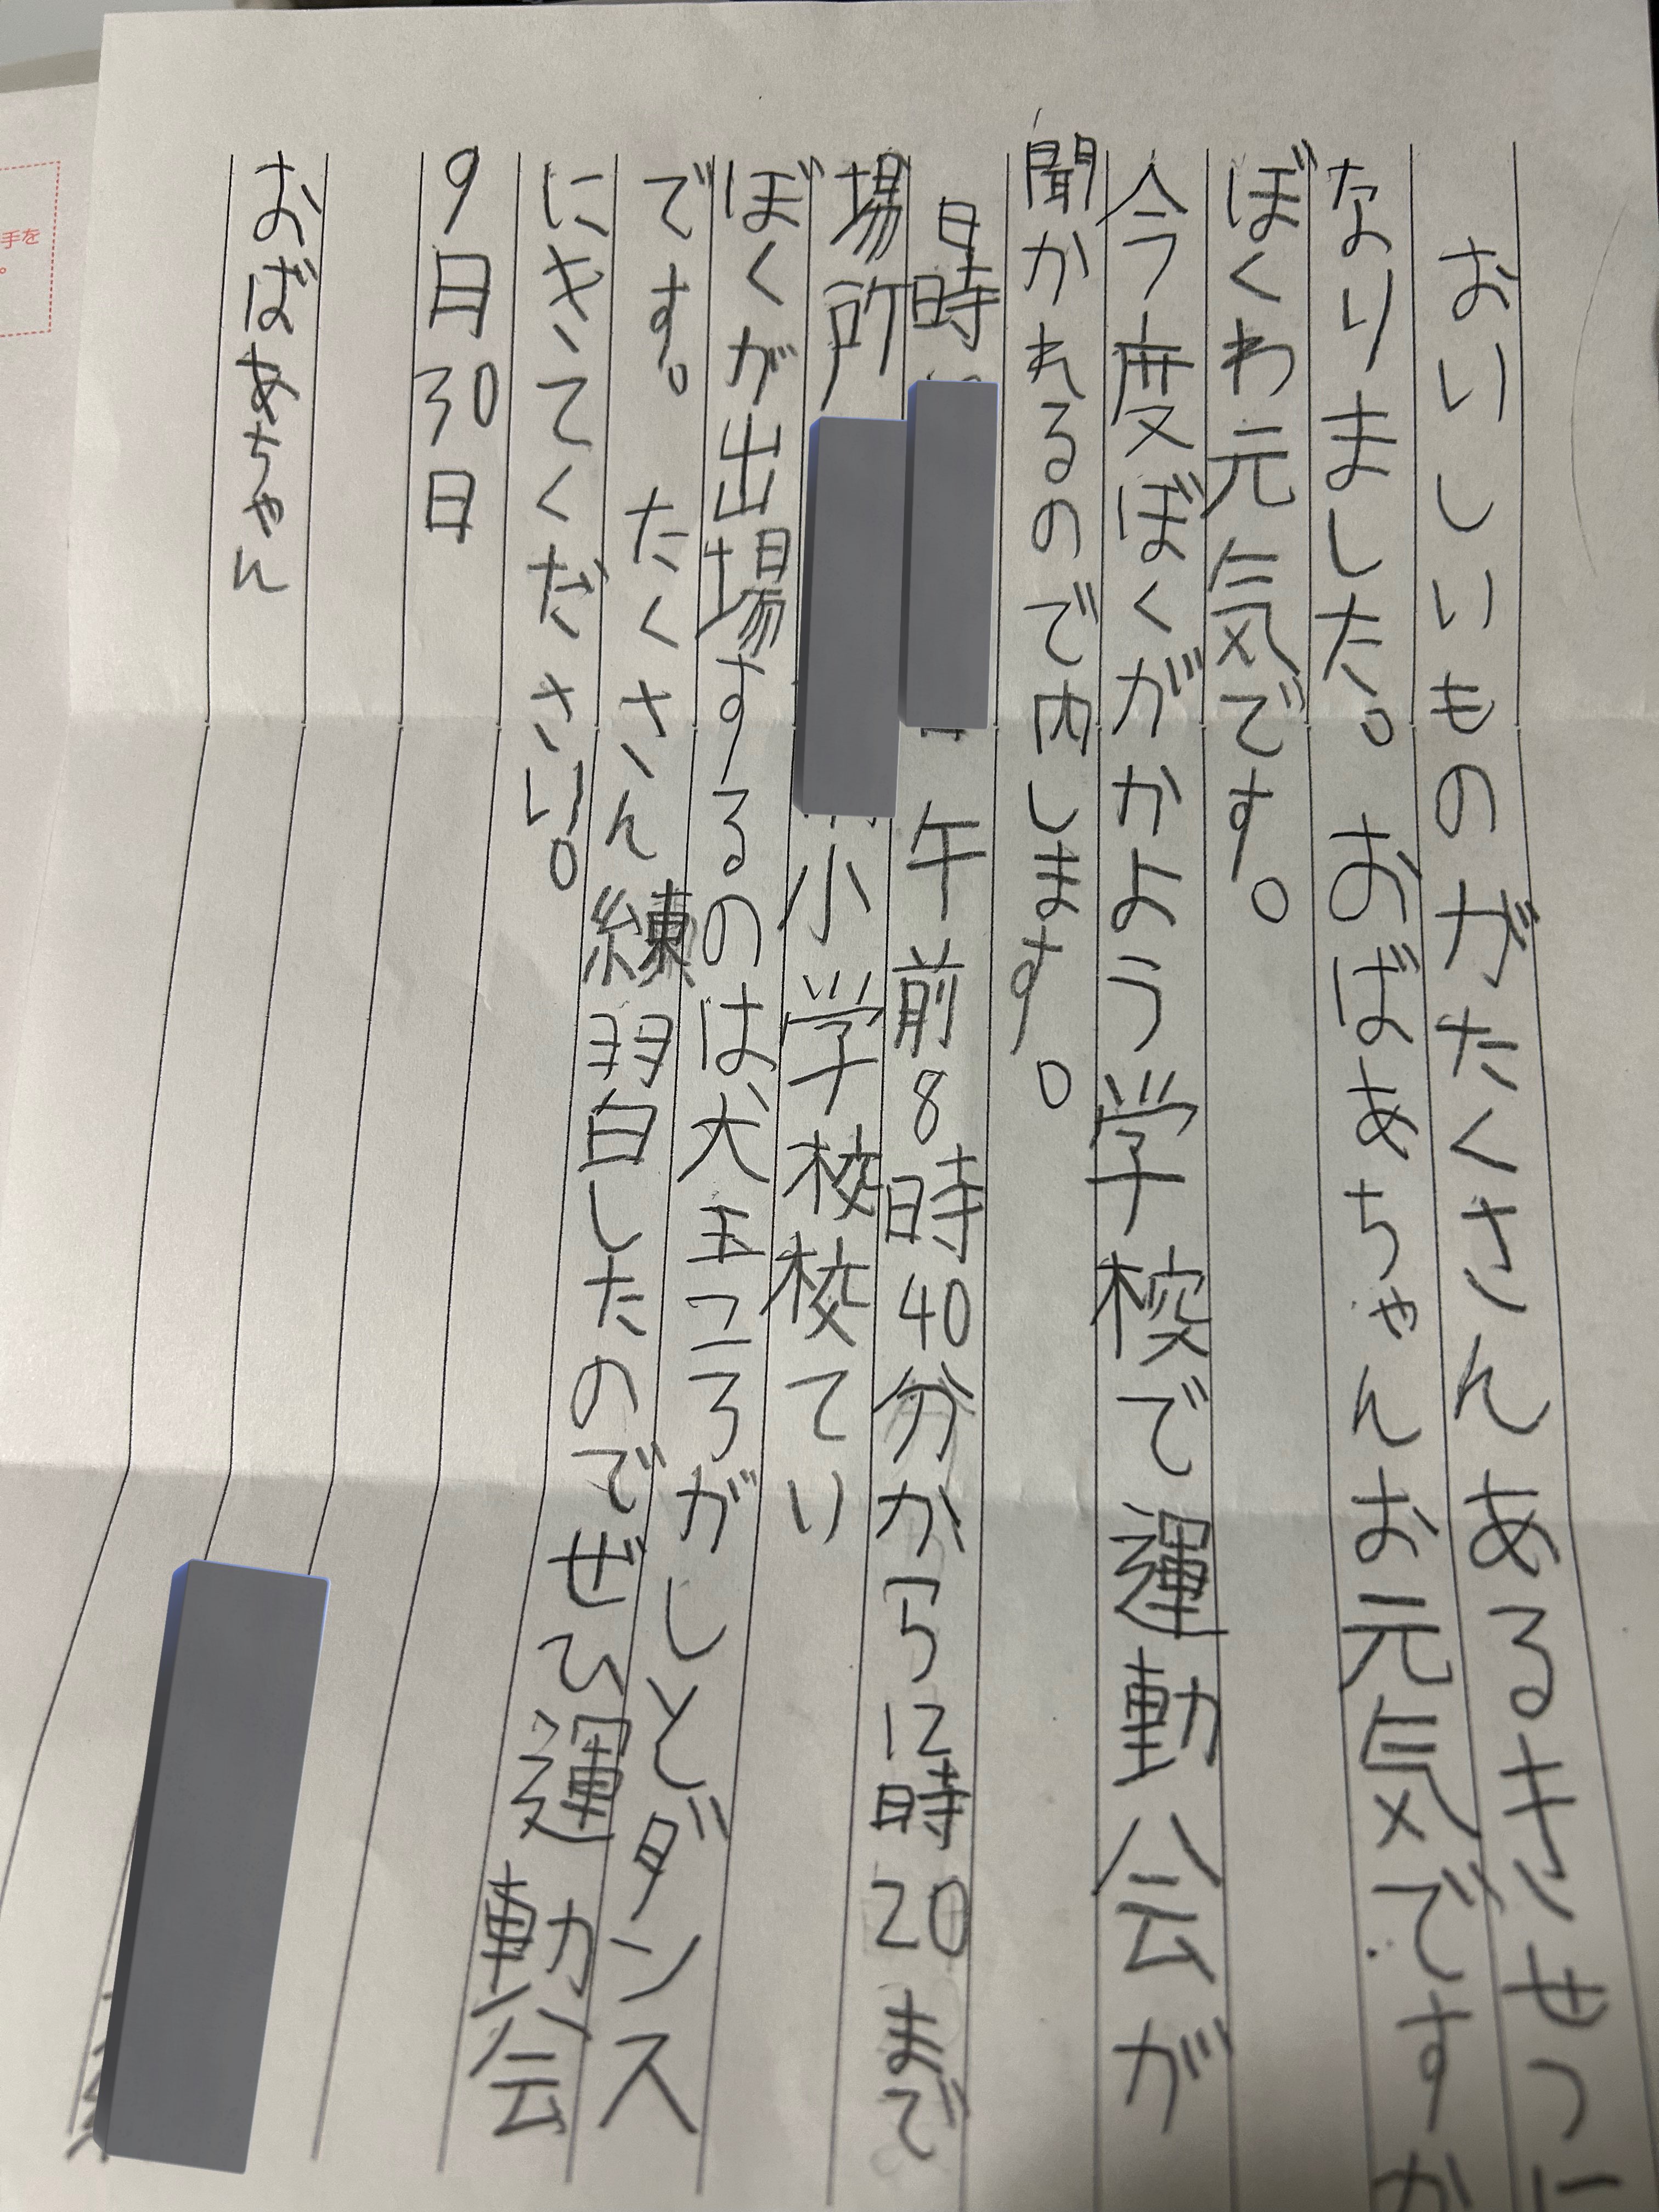 おいしいものがたくさんあるきせつに
なりました。おばあちゃんお元気ですか
ぼくわ元気です。
今度ぼくがかよう学校で運動会が
聞かれるので内します。
日時 午前8時40分から12時20まで
場所 小学校校てい
ぼくが出場するのは、犬玉コろがしとダンス
です。たくさん練習したのでぜひ運動会
にきてください。
9月30日
おばあちゃん
手を